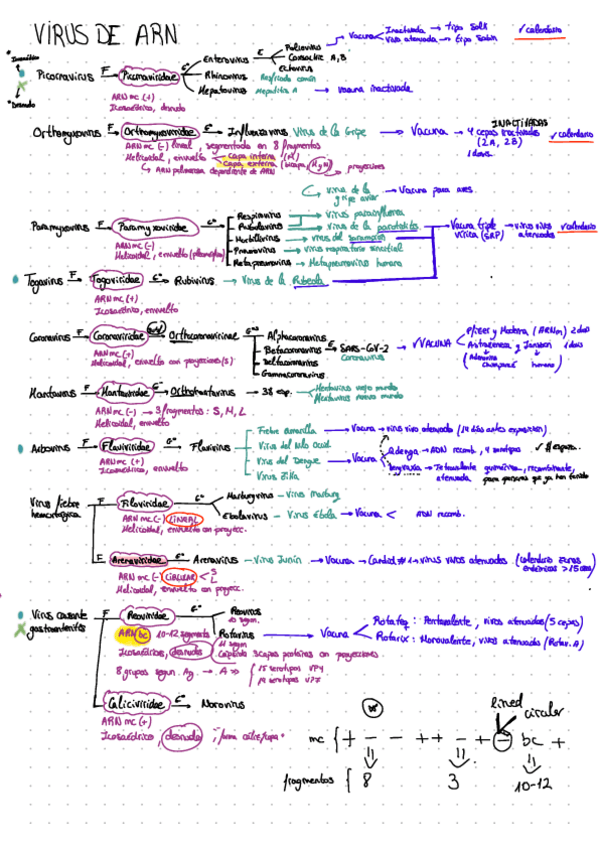 VIRUS DE ARN
Vacuna Inactivada → tipo Salk
Viva atenuada → tipo Sabin
✓ calendario
* Icosaédrico
* Desnudo
Picornavirus F Picornaviridae Enterovirus E Poliovirus
Coxsackie A, B
Echovirus
Rhinovirus Resfriado común
Hepatovirus Hepatitis A → vacuna inactivada
ARN mc (+)
Icosaédrico, desnudo
INACTIVADAS
Orthomyxovirus F Orthomyxoviridae G Influenzavirus Virus de la Gripe → Vacuna → 4 cepas inactivadas ✓ calendario
(2A, 2B)
1 dosis.
ARN mc (-) lineal, segmentado en 8 fragmentos
Helicoidal, envuelto capa interna (M)
capa externa (bicapa, H y N) → proyecciones
↳ ARN polimerasa dependiente de ARN
virus de la gripe aviar → Vacuna para aves
Paramyxovirus F Paramyxoviridae G Respirovirus → virus parainfluenza
Rubulavirus → virus de la parotiditis
Morbillivirus → virus del sarampión
Pneumovirus → virus respiratorio sincitial
Metapneumovirus → Metapneumovirus humano
Vacuna triple vírica (SRP) → virus vivos atenuados ✓ calendario
ARN mc (-)
Helicoidal, envuelto (pleomorfos)
Togavirus F Togaviridae G Rubivirus → Virus de la Rubeola
ARN mc (+)
Icosaédrico, envuelto
Coronavirus F Coronaviridae Orthocoronavirinae Alphacoronavirus
Betacoronavirus E SARS-CoV-2
Coronavirus
Deltacoronavirus
Gammacoronavirus
VACUNA Pfizer y Moderna (ARNm) 2 dosis
Astrazeneca y Janssen 1 dosis
(Adenovirus chimpancé humano)
ARN mc (+)
Helicoidal, envuelto con proyecciones (S)
Hantavirus F Hantaviridae G Orthohantavirus → 38 esp. Hantavirus viejo mundo
Hantavirus nuevo mundo
ARN mc (-) → 3 fragmentos: S, M, L
Helicoidal, envuelto
Arbovirus F Flaviviridae G Flavivirus Fiebre amarilla → Vacuna → virus vivo atenuado (10 días antes exposición)
Virus del Nilo Occid.
Virus del Dengue → Vacuna
Virus Zika
ARN mc (+)
Icosaédrico, envuelto
Virus fiebre hemorrágica F Filoviridae G Marburgvirus – Virus Marburg
Ebolavirus – Virus Ébola → Vacuna < ADN recomb.
ARN mc (-) LINEAL
Helicoidal, envuelto con proyecc.
F Arenaviridae G Arenavirus – Virus Junín → Vacuna → Candid #1 → virus vivos atenuados (calendario zonas endémicas > 15 años)
ARN mc (-) CIRCULAR < S
L
Helicoidal, envuelto con proyecc.
Virus causante gastroenteritis F Reoviridae G Reovirus
10 segm.
Rotavirus
11 segm.
Vacuna Rotateq: Pentavalente, vivos atenuados (5 cepas)
Rotarix: Monovalente, vivos atenuados (Rotav. A)
ARN bc 10-12 segmentos
Icosaédrico, desnudo Cápside 3 capas proteínas con proyecciones
8 grupos según Ag → A ⇒ 15 serotipos VP4
14 serotipos VP7
Caliciviridae G Norovirus
ARN mc (+)
Icosaédrico, desnudo, forma cáliz/copa
lineal
circular
mc { + - - + + - + - bc +
fragmentos { 8 3 10-12